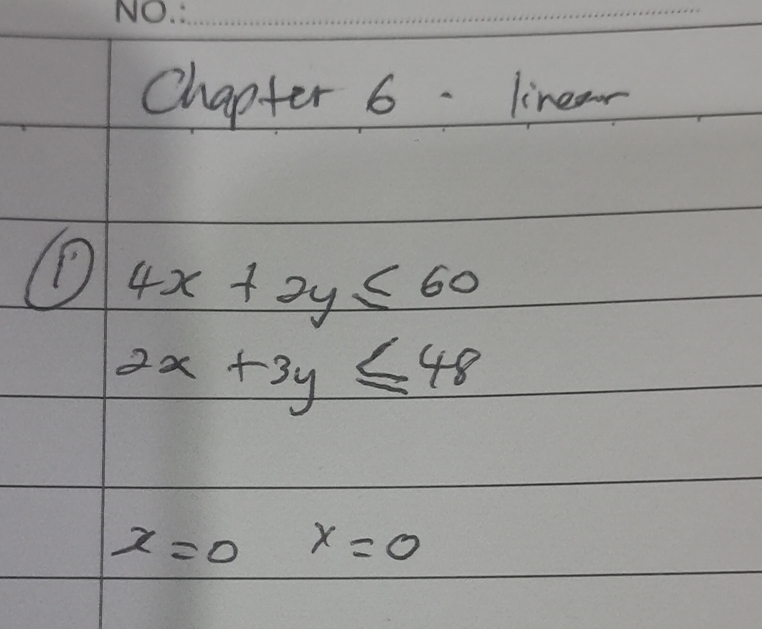 NO.:
Chapter 6 - linear
① 4x + 2y ≤ 60
2x + 3y ≤ 48
x = 0 x = 0